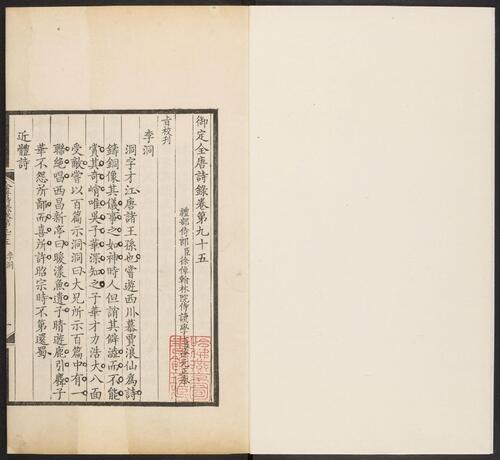 御定全唐詩錄卷第九十五
禮部侍郎臣徐倬翰林院侍讀學
旨校刊
李洞
洞字才江唐諸王孫也嘗遊西川慕賈浪仙為詩
鑄銅像其儀事之如神時人但誚其僻澁而不能
賞其奇峭唯吳子華深知之子華才力浩大八面
受敵嘗以百篇示洞洞曰大兄所示百篇中有一
聯絕唱西昌新亭曰暖漾魚遺子晴遊鹿引麛子
華不怨所鄙而喜所許昭宗時不第還蜀
近體詩
李洞